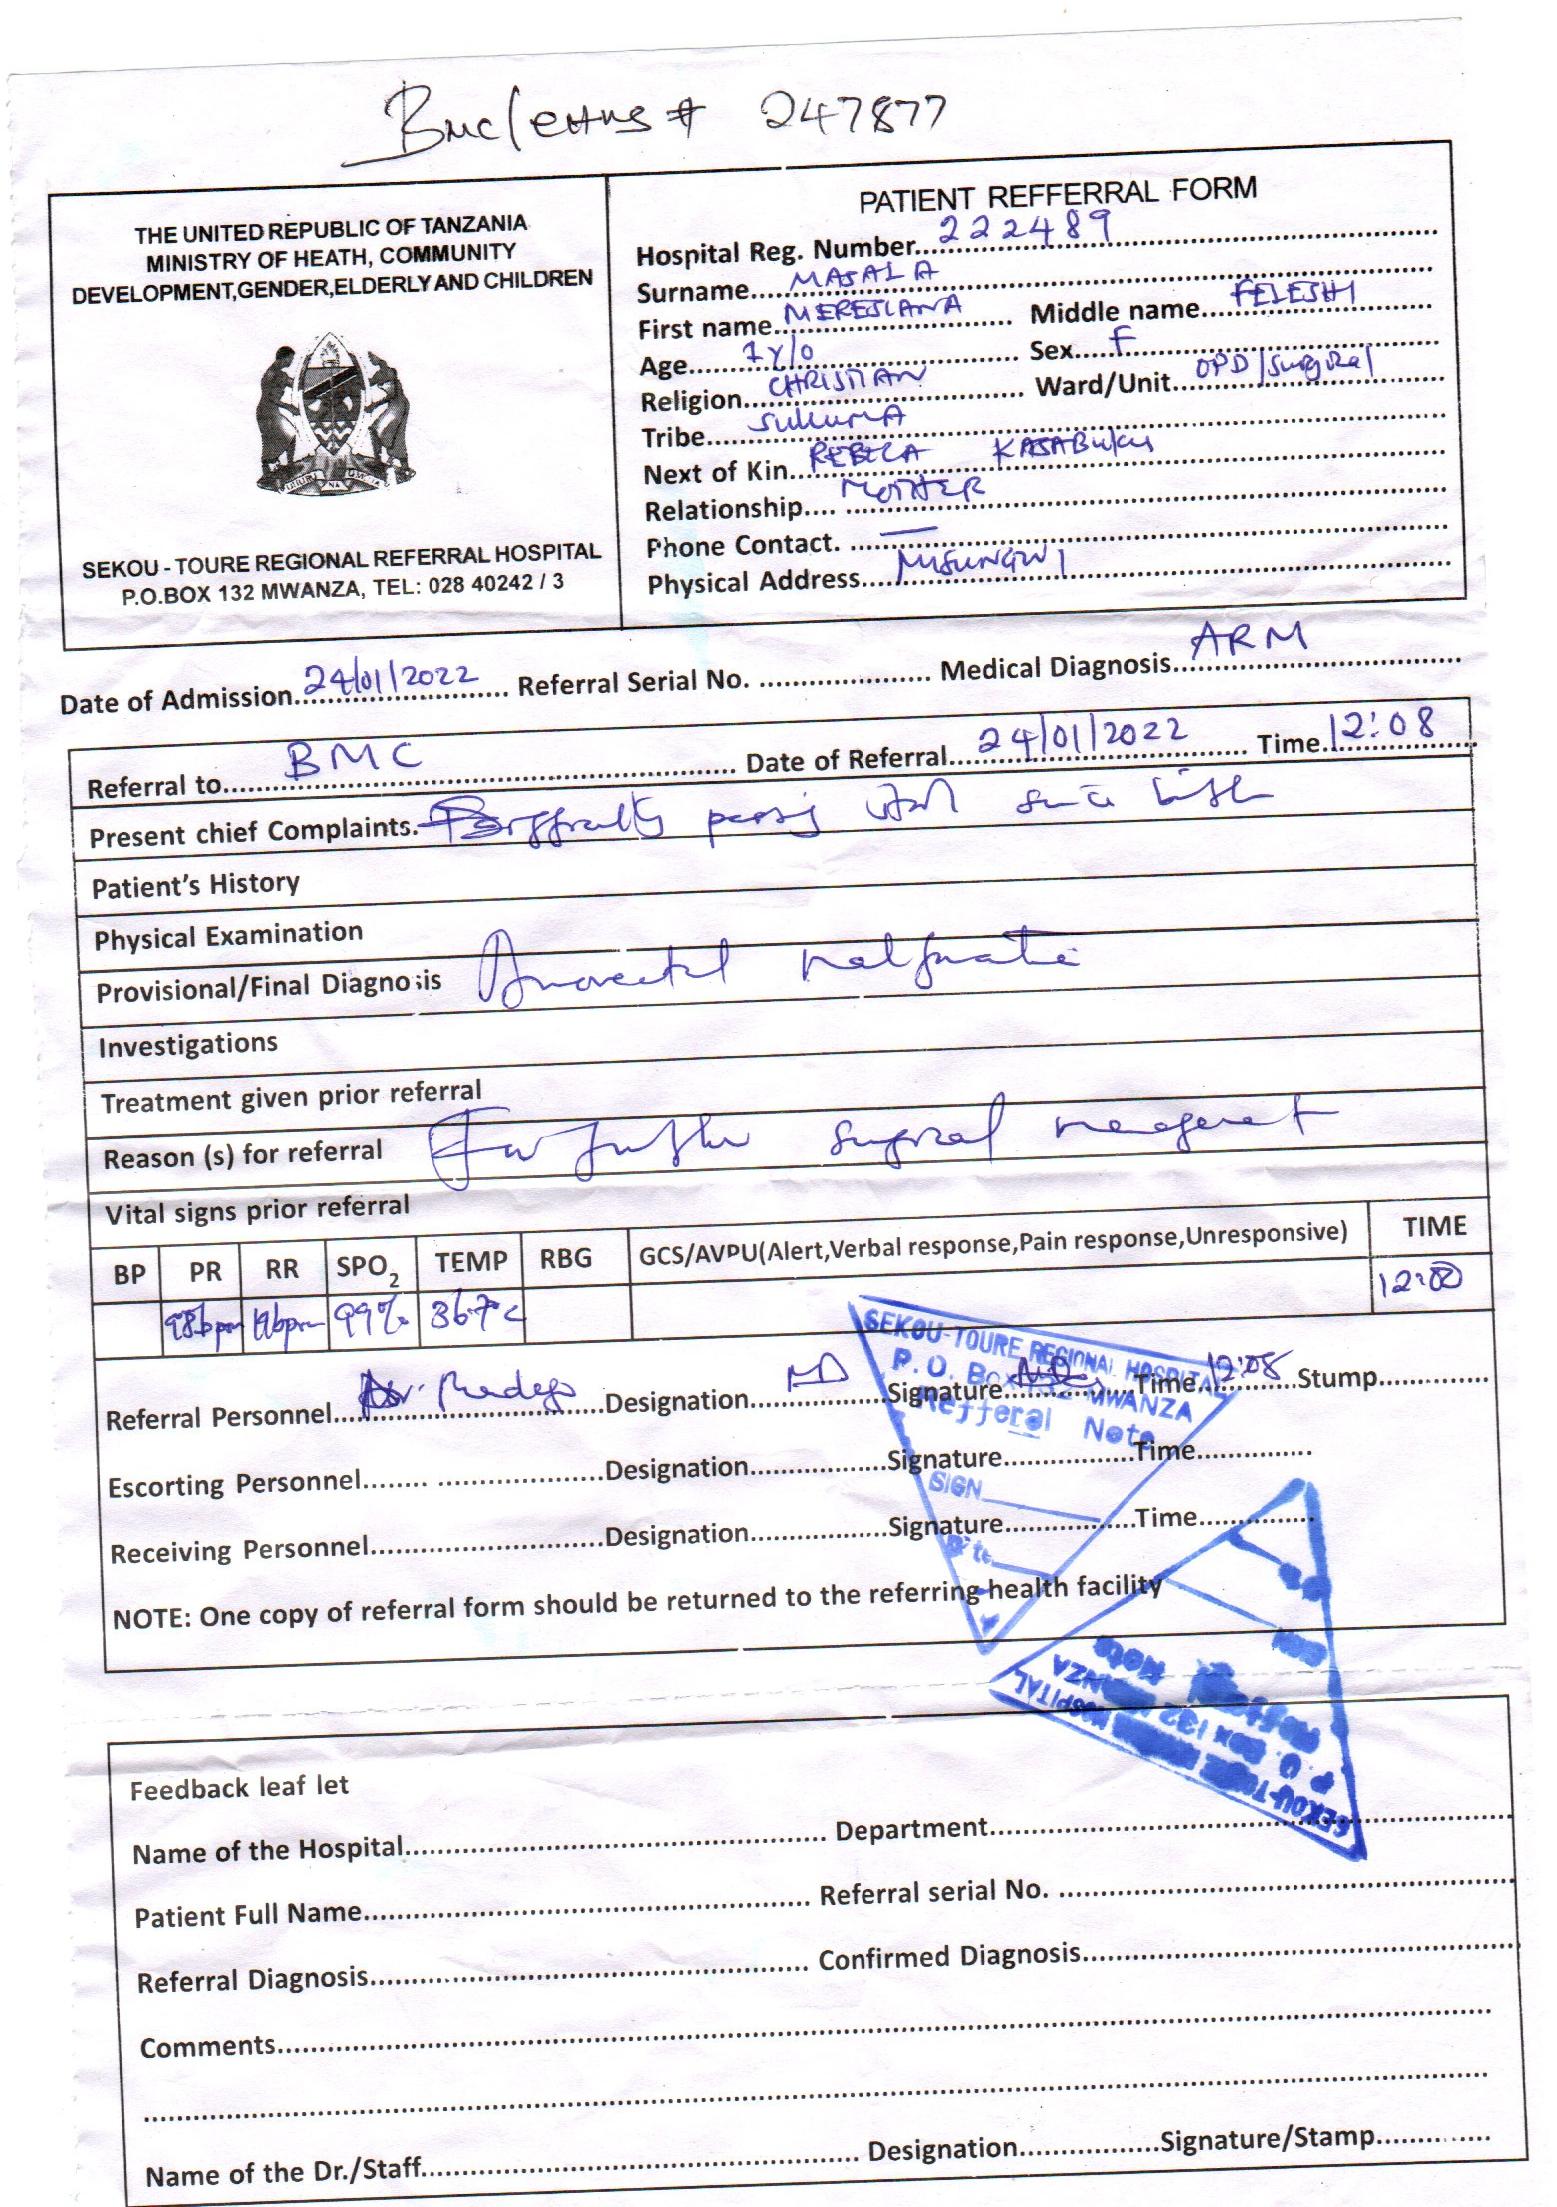 Bmc/eHMS # 247877
THE UNITED REPUBLIC OF TANZANIA
MINISTRY OF HEATH, COMMUNITY
DEVELOPMENT,GENDER,ELDERLY AND CHILDREN
SEKOU - TOURE REGIONAL REFERRAL HOSPITAL
P.O.BOX 132 MWANZA, TEL: 028 40242 / 3
PATIENT REFFERRAL FORM
Hospital Reg. Number 222489
Surname MASALA
First name Middle name FELESHI
Age 7 y/o Sex F
Religion CHRISTIAN Ward/Unit OPD/Surgical
Tribe SUKUMA
Next of Kin REBECA
Relationship MOTHER
Phone Contact. —
Physical Address MISUNGWI
Date of Admission 24/01/2022 Referral Serial No. Medical Diagnosis ARM
Referral to BMC Date of Referral 24/01/2022 Time 12:08
Present chief Complaints. passing stool since birth
Patient's History
Physical Examination
Provisional/Final Diagnosis Anorectal malformation
Investigations
Treatment given prior referral
Reason (s) for referral For further surgical management
Vital signs prior referral
BP PR RR SPO2 TEMP RBG GCS/AVPU(Alert,Verbal response,Pain response,Unresponsive) TIME
98bpm 99% 36.7°c
Referral Personnel Dr. Designation MD Signature Time 12:08 Stump
Escorting Personnel Designation Signature Time
Receiving Personnel Designation Signature Time
NOTE: One copy of referral form should be returned to the referring health facility
SEKOU-TOURE REGIONAL HOSPITAL
P. O. Box 132 MWANZA
Refferal Note
SIGN
Date
SEKOU-TOURE HOSPITAL
P. O. Box 132 MWANZA
Note
Feedback leaf let
Name of the Hospital Department
Patient Full Name Referral serial No.
Referral Diagnosis Confirmed Diagnosis
Comments
Name of the Dr./Staff Designation Signature/Stamp